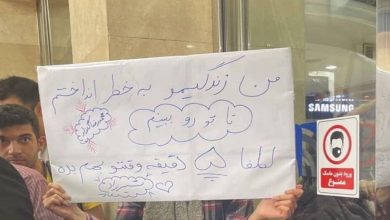 من زندگیمو به خطر انداختم
تا تو رو ببینم
لطفا ۵ دقیقه وقتتو بهم بده
SAMSUNG
ورود بدون ماسک
ممنوع